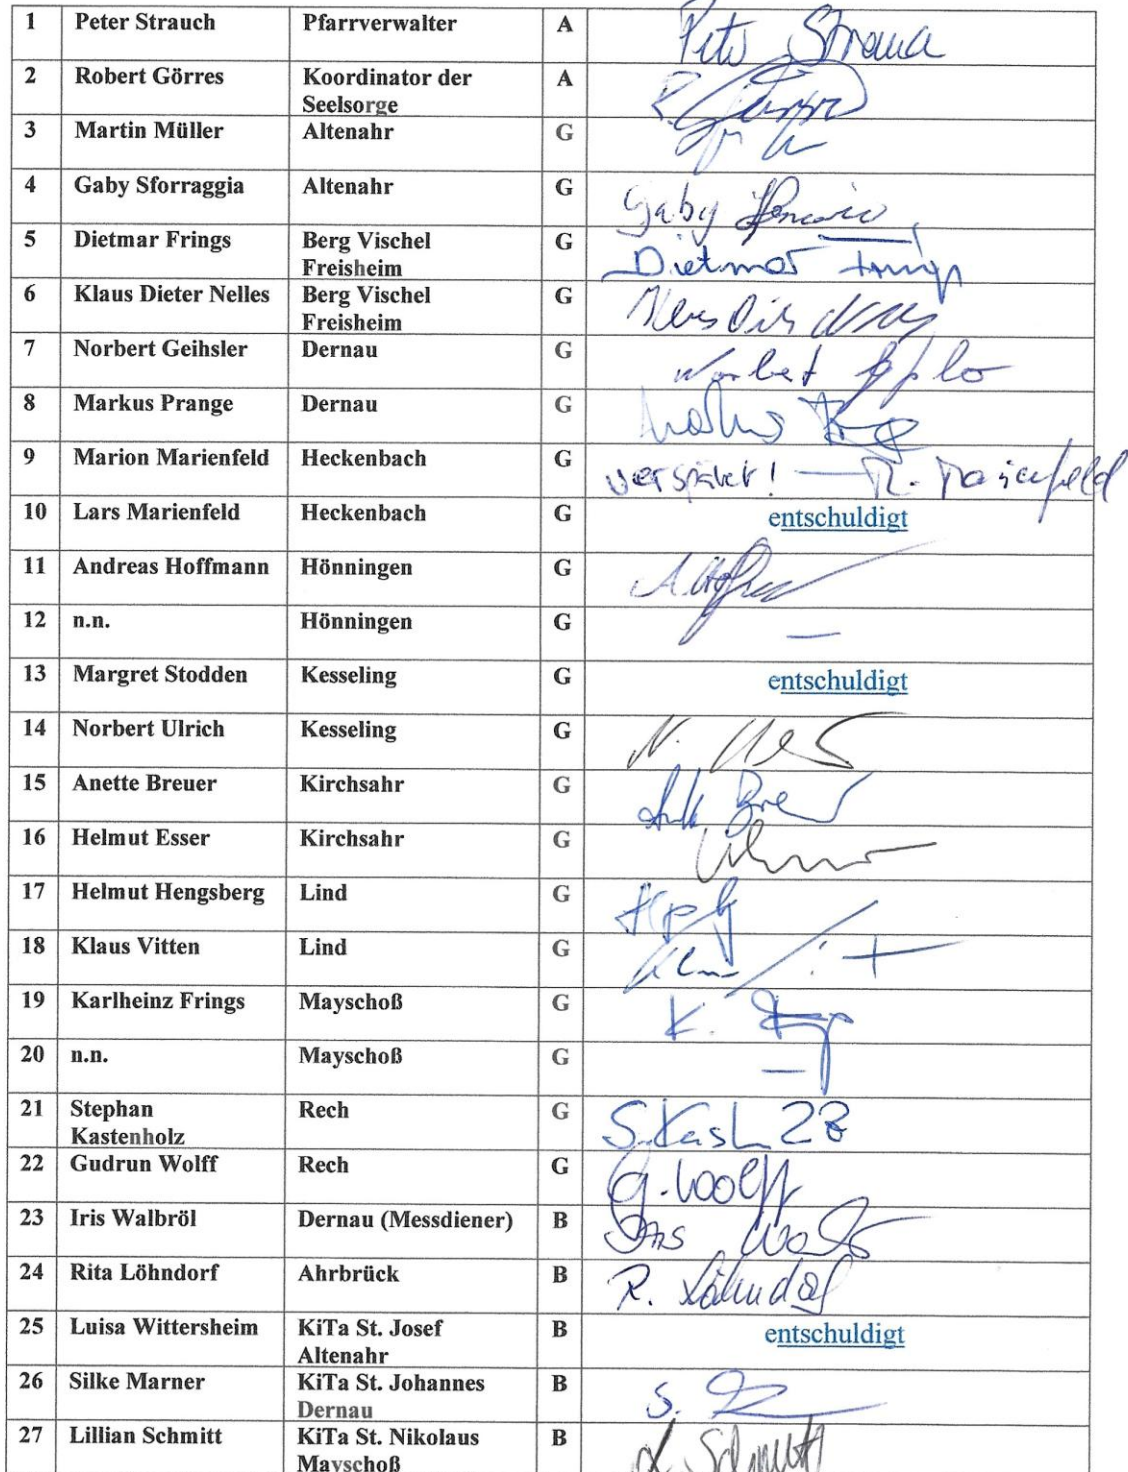 1 Peter Strauch Pfarrverwalter A Peter Strauch
2 Robert Görres Koordinator der A
Seelsorge
3 Martin Müller Altenahr G
4 Gaby Sforraggia Altenahr G Gaby
5 Dietmar Frings Berg Vischel G Dietmar Frings
Freisheim
6 Klaus Dieter Nelles Berg Vischel G
Freisheim
7 Norbert Geihsler Dernau G Norbert
8 Markus Prange Dernau G Markus
9 Marion Marienfeld Heckenbach G verspätet! — M. Marienfeld
10 Lars Marienfeld Heckenbach G entschuldigt
11 Andreas Hoffmann Hönningen G
12 n.n. Hönningen G —
13 Margret Stodden Kesseling G entschuldigt
14 Norbert Ulrich Kesseling G N.
15 Anette Breuer Kirchsahr G
16 Helmut Esser Kirchsahr G
17 Helmut Hengsberg Lind G
18 Klaus Vitten Lind G
19 Karlheinz Frings Mayschoß G K.
20 n.n. Mayschoß G —
21 Stephan Rech G
Kastenholz
22 Gudrun Wolff Rech G G. Wolff
23 Iris Walbröl Dernau (Messdiener) B Iris
24 Rita Löhndorf Ahrbrück B R. Löhndorf
25 Luisa Wittersheim KiTa St. Josef B entschuldigt
Altenahr
26 Silke Marner KiTa St. Johannes B S.
Dernau
27 Lillian Schmitt KiTa St. Nikolaus B L. Schmitt
Mayschoß